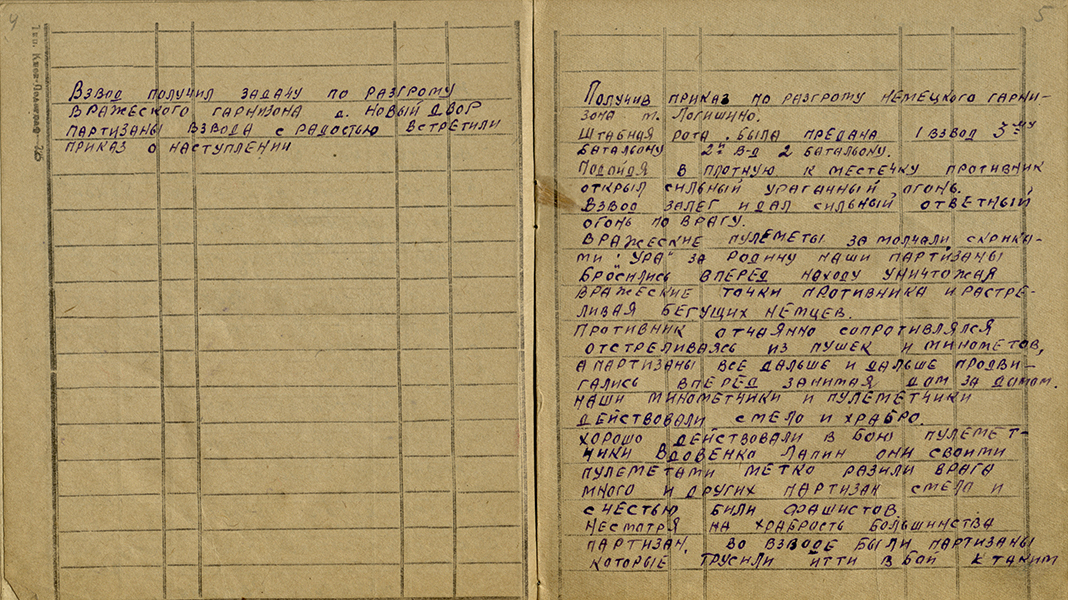 4
Взвод получил задачу по разгрому
вражеского гарнизона д. Новый двор
партизаны взвода с радостью встретили
приказ о наступлении
5
Получив приказ по разгрому немецкого гарни-
зона м. Логишино.
Штабная рота . была предана 1 взвод 3му
батальону 2й в-д 2 батальону.
Подойдя в плотную к местечку противник
открыл сильный ураганный огонь.
Взвод залег и дал сильный ответный
огонь по врагу.
Вражеские пулеметы за молчали скрика-
ми "Ура" за Родину наши партизаны
бросились вперед находу уничтожая
вражеские точки противника и растре-
ливая бегущих немцев.
Противник отчаянно сопротивлялся
отстреливаясь из пушек и минометов,
а партизаны все дальше и дальше продви-
гались вперед занимая дом за домом.
наши минометчики и пулеметчики
действовали смело и храбро.
хорошо действовали в бою пулемет-
чики Вдовенко Лапин они своими
пулеметами метко разили врага
много и других партизан смело и
счестью били фашистов.
Несмотря на храбрость большинства
партизан, во взводе были партизаны
которые трусили итти в бой к таким